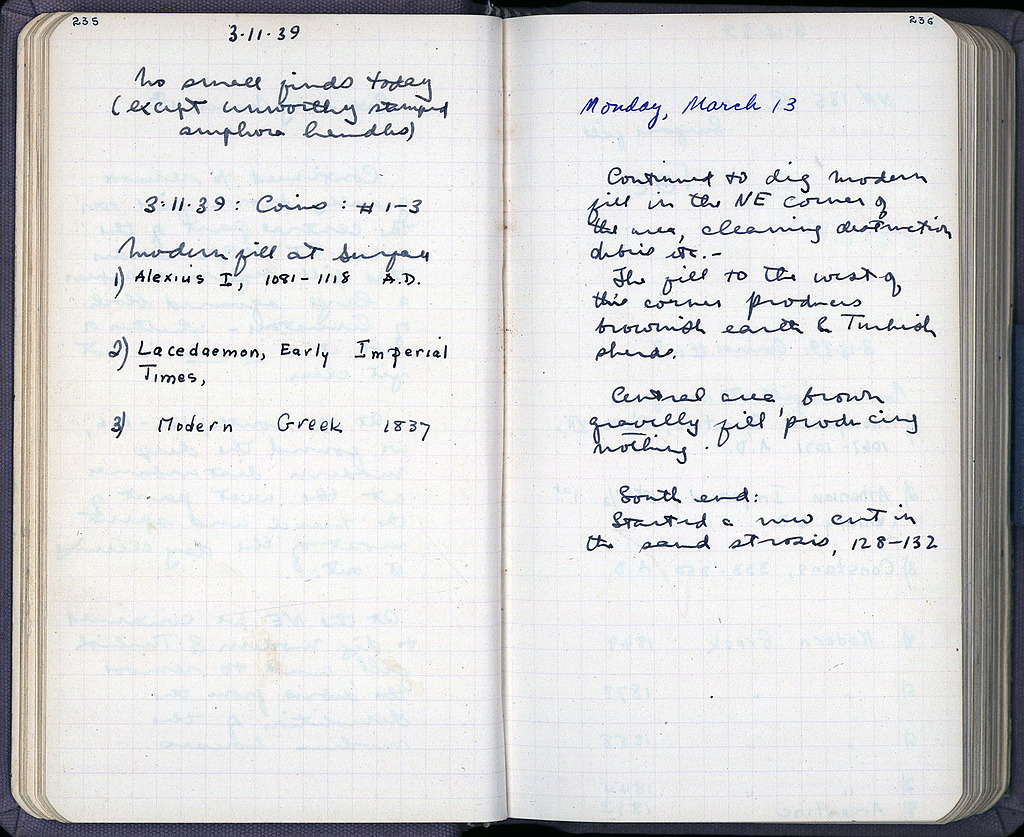 235
3·11·39
No small finds today
(except unworthy stamped
amphora handles)
3·11·39: Coins: #1-3
Modern fill at Surface
1) Alexius I, 1081-1118 A.D.
2) Lacedaemon, Early Imperial
Times,
3) Modern Greek 1837
236
Monday, March 13
Continued to dig modern
fill in the NE corner of
the area, cleaning destruction
debris etc.-
The fill to the west of
this corner produces
brownish earth & Turkish
sherds.
Central area brown
gravelly fill producing
nothing.
South end:
Started a new cut in
the sand strosis, 128-132